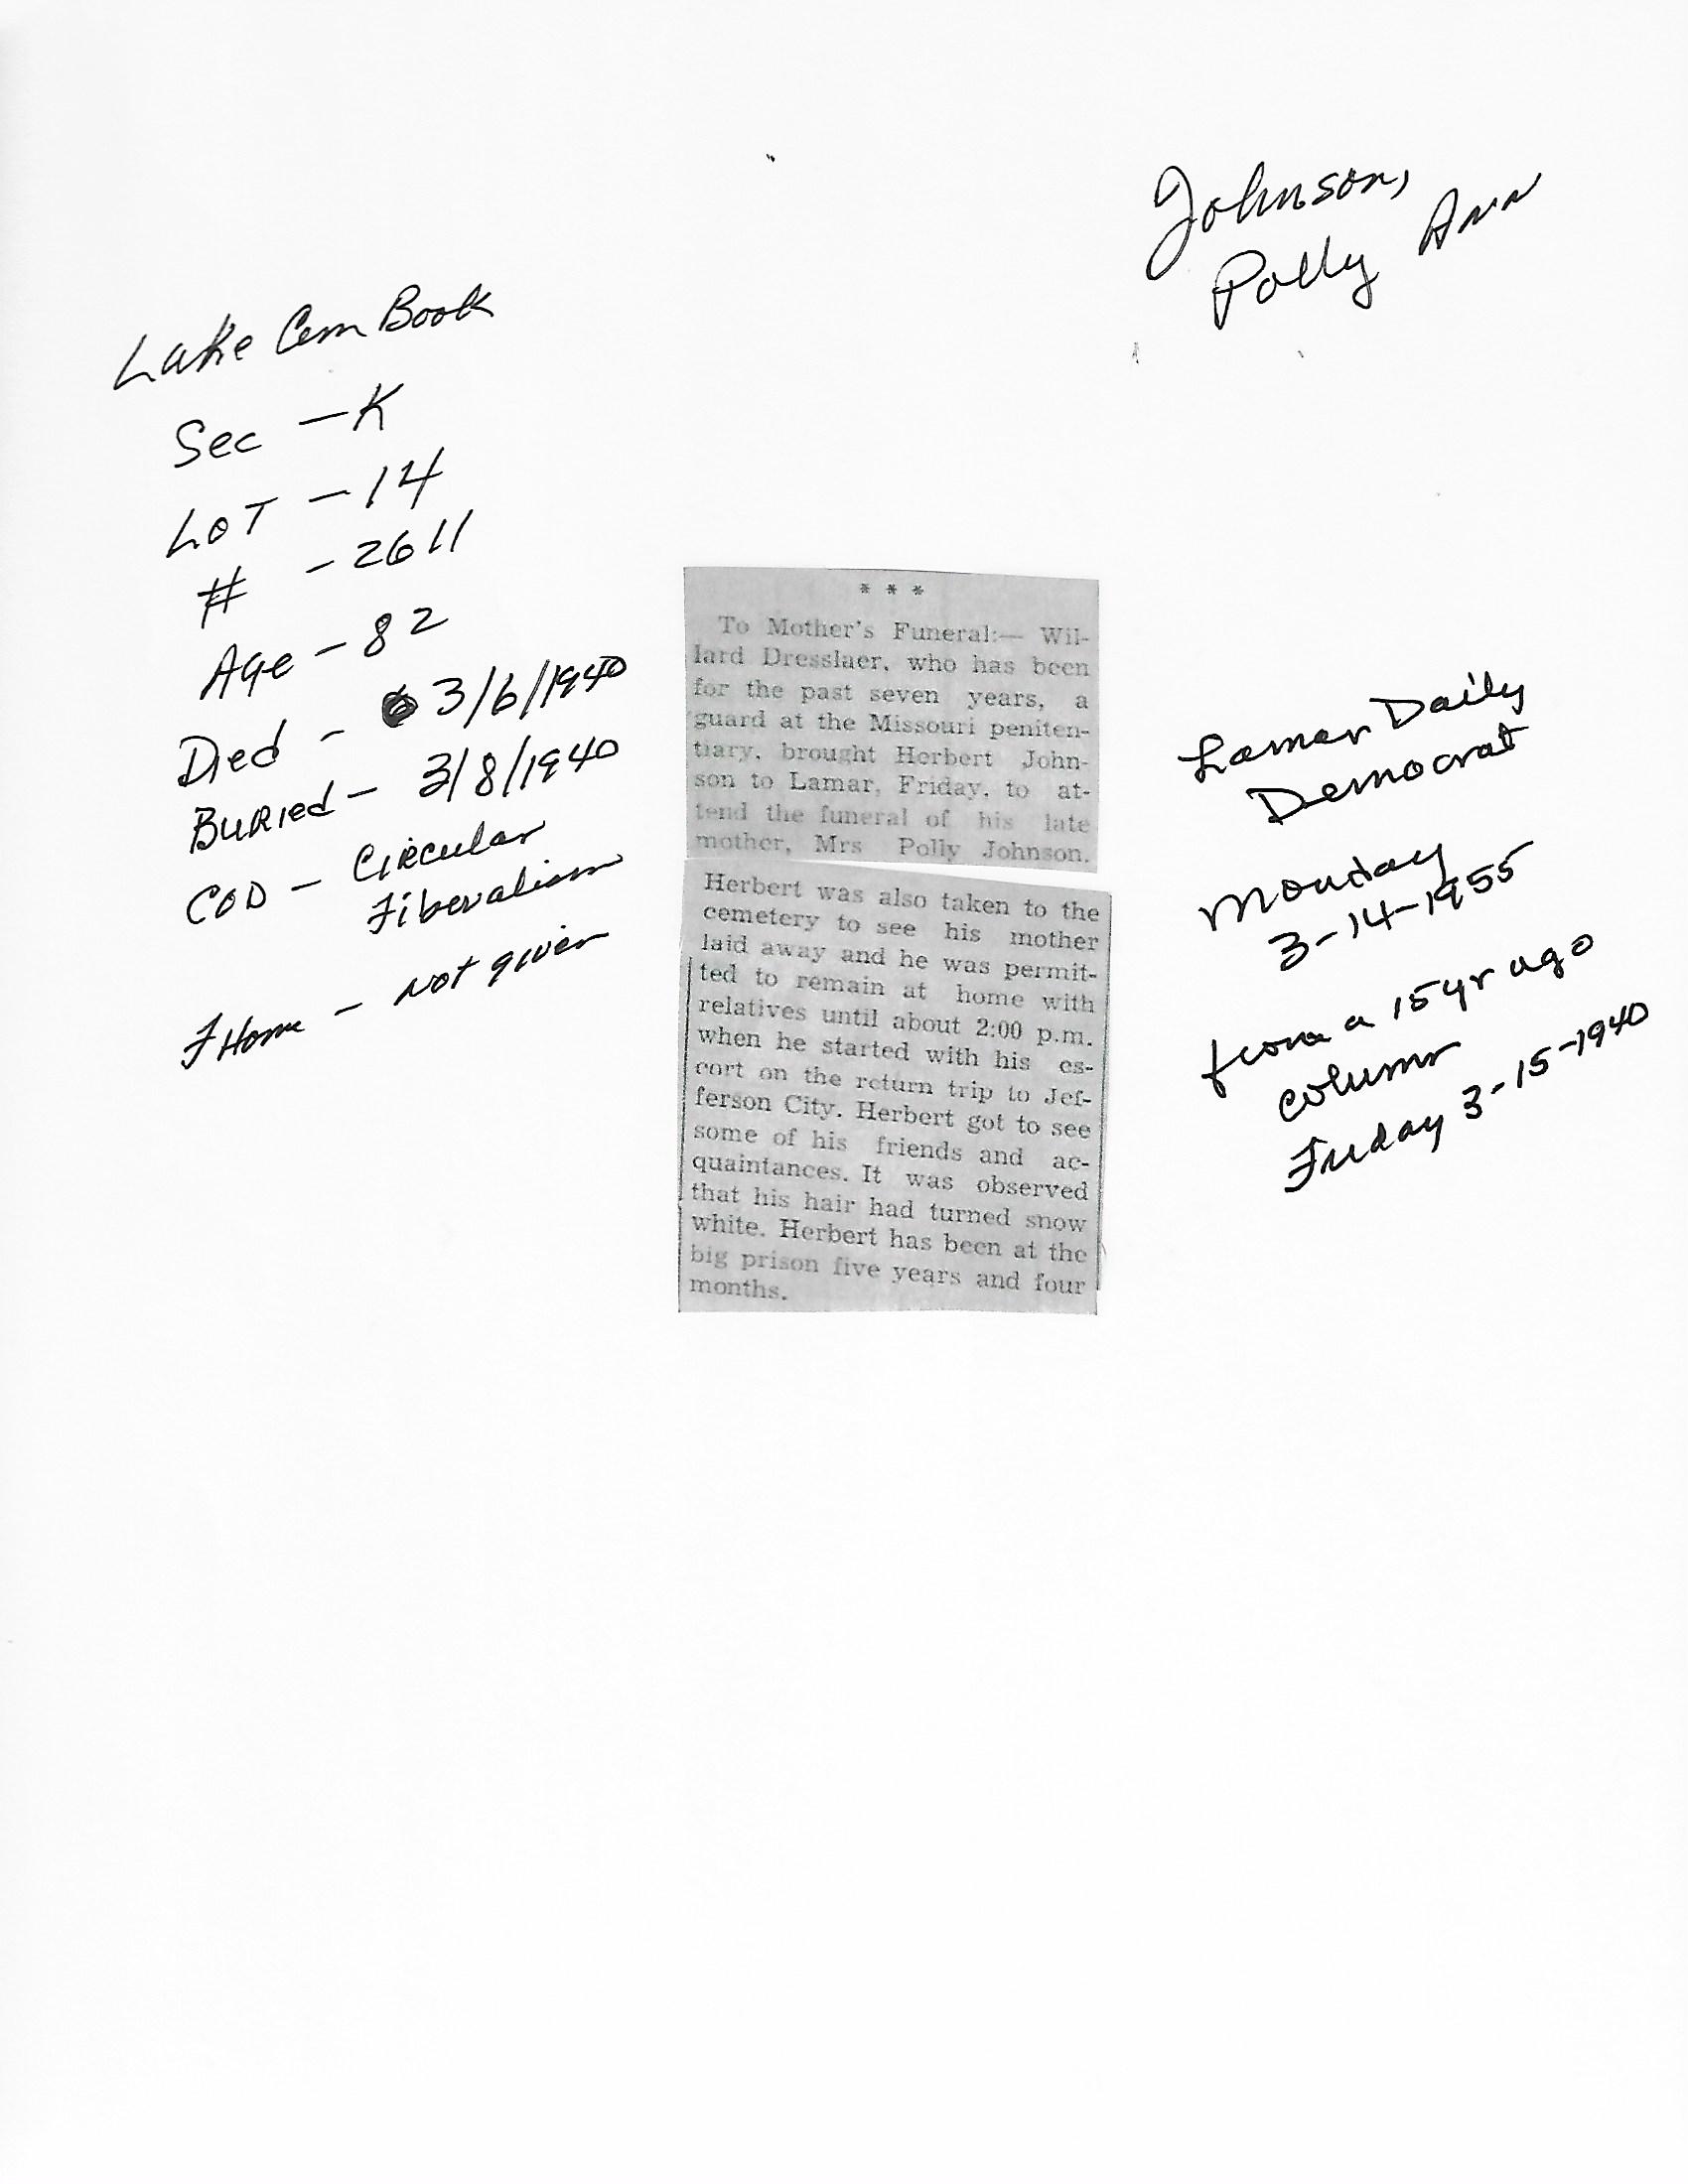 Johnson,
Polly Ann
Lake Cem Book
Sec - K
LOT - 14
# - 2611
Age - 82
Died - 3/6/1940
Buried - 3/8/1940
COD - Circular
Fiberalism
F Home - not given
* * *
To Mother's Funeral:— Wil-
lard Dresslaer, who has been
for the past seven years, a
guard at the Missouri peniten-
tiary, brought Herbert John-
son to Lamar, Friday, to at-
tend the funeral of his late
mother, Mrs Polly Johnson.
Herbert was also taken to the
cemetery to see his mother
laid away and he was permit-
ted to remain at home with
relatives until about 2:00 p.m.
when he started with his es-
cort on the return trip to Jef-
ferson City. Herbert got to see
some of his friends and ac-
quaintances. It was observed
that his hair had turned snow
white. Herbert has been at the
big prison five years and four
months.
Lamar Daily
Democrat
Monday
3-14-1955
from a 15 yr ago
column
Friday 3-15-1940